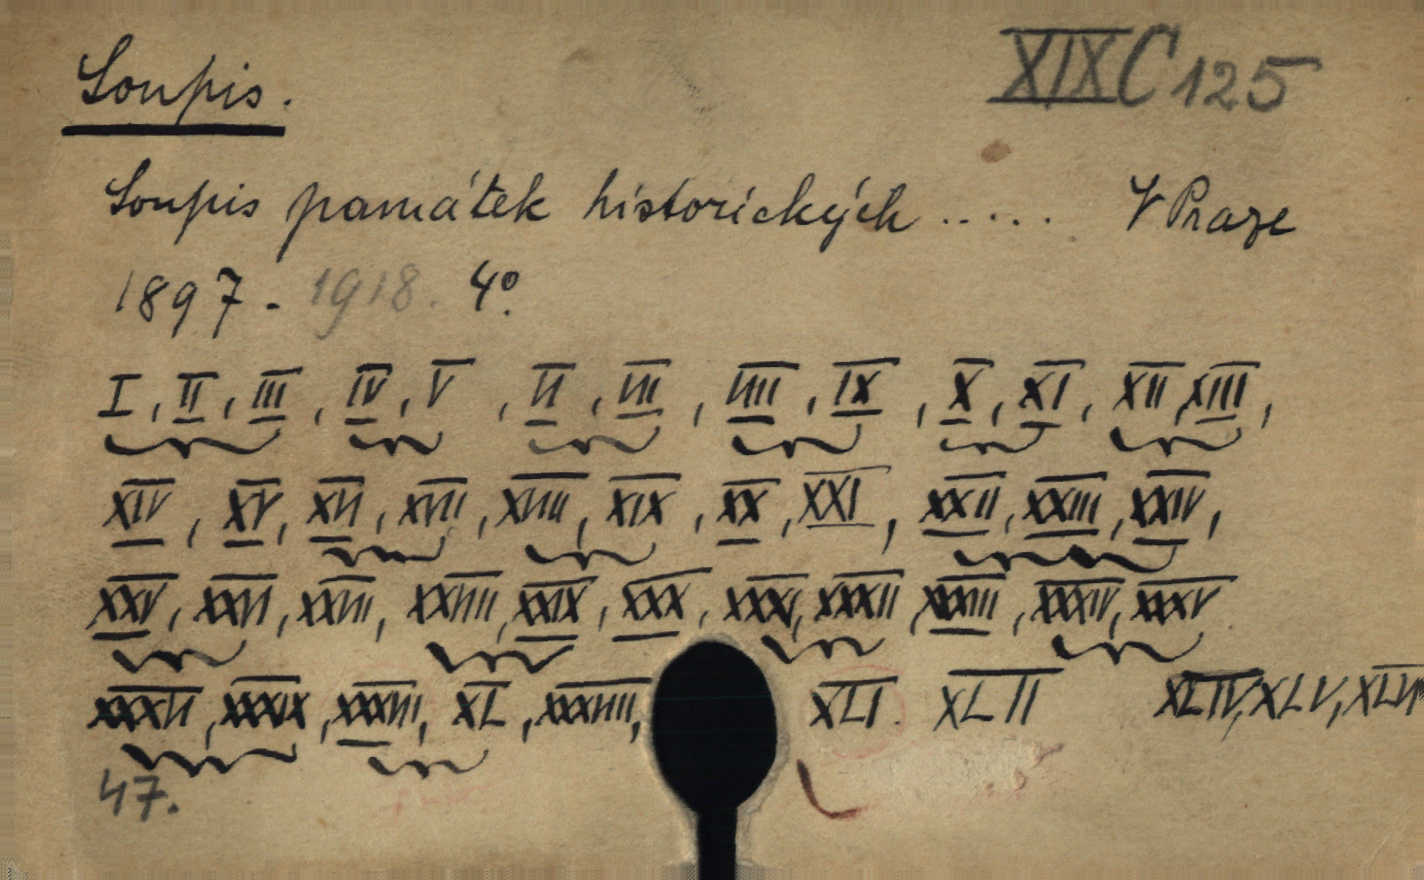 Soupis.
XIX C 125
Soupis památek historických ..... V Praze
1897 - 1918. 4°.
I, II, III, IV, V, VI, VII, VIII, IX, X, XI, XII, XIII,
XIV, XV, XVI, XVII, XVIII, XIX, XX, XXI, XXII, XXIII, XXIV,
XXV, XXVI, XXVII, XXVIII, XXIX, XXX, XXXI, XXXII, XXXIII, XXXIV, XXXV
XXXVI, XXXIX, XXXVII, XL, XXXVIII, XLI. XLII XLIV, XLV,
47.